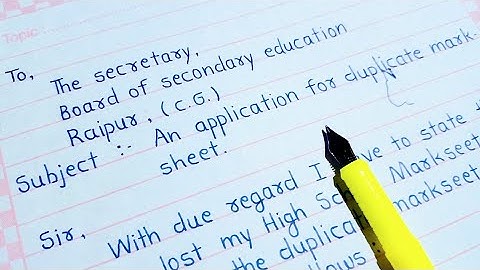 Topic:
To,
The secretary,
Board of secondary education
Raipur, (C.G.)
Subject :- An application for duplicate mark.
sheet.
Sir,
With due regard I to state
lost my High Markseet
the duplicate markseet